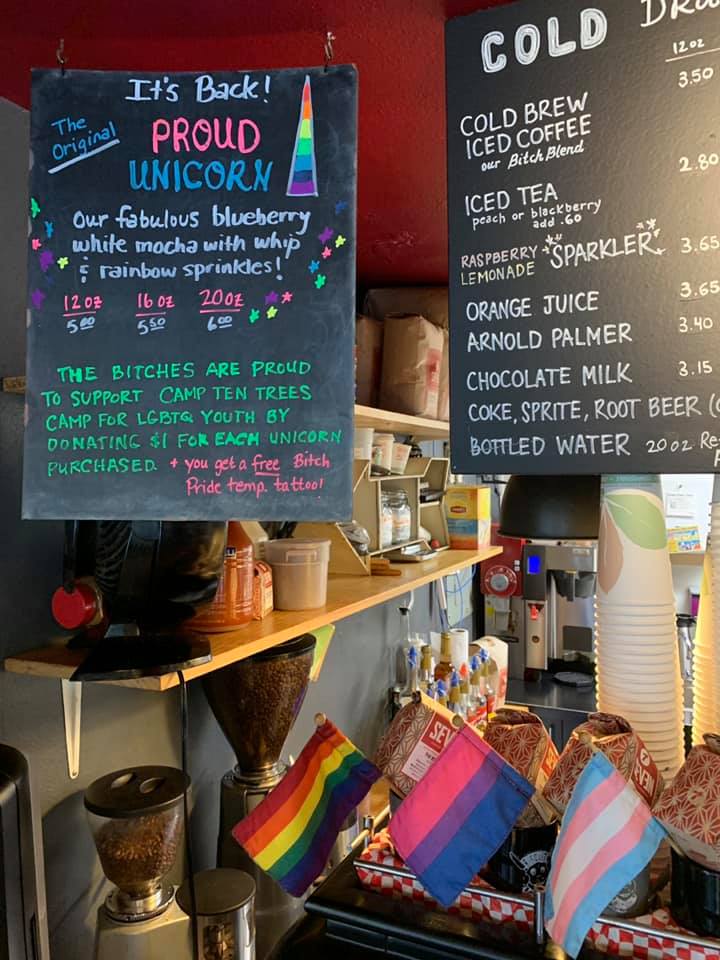 It's Back!
The Original
PROUD
UNICORN
Our fabulous blueberry
white mocha with whip
& rainbow sprinkles!
12 oz 16 oz 20 oz
5.00 5.50 6.00
THE BITCHES ARE PROUD
TO SUPPORT CAMP TEN TREES
CAMP FOR LGBTQ YOUTH BY
DONATING $1 FOR EACH UNICORN
PURCHASED. + you get a free Bitch
Pride temp. tattoo!
COLD
12 oz
3.50
COLD BREW
ICED COFFEE
our Bitch Blend
2.80
ICED TEA
peach or blackberry
add .60
RASPBERRY
LEMONADE
"SPARKLER" 3.65
ORANGE JUICE 3.65
ARNOLD PALMER 3.40
CHOCOLATE MILK 3.15
COKE, SPRITE, ROOT BEER
BOTTLED WATER 20 oz